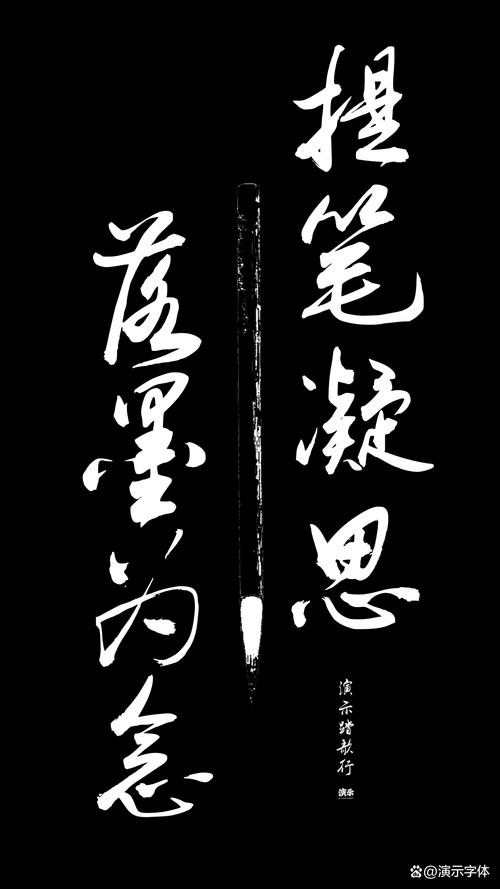 提笔凝思
落墨为念
演示踏歌行
演示
@演示字体